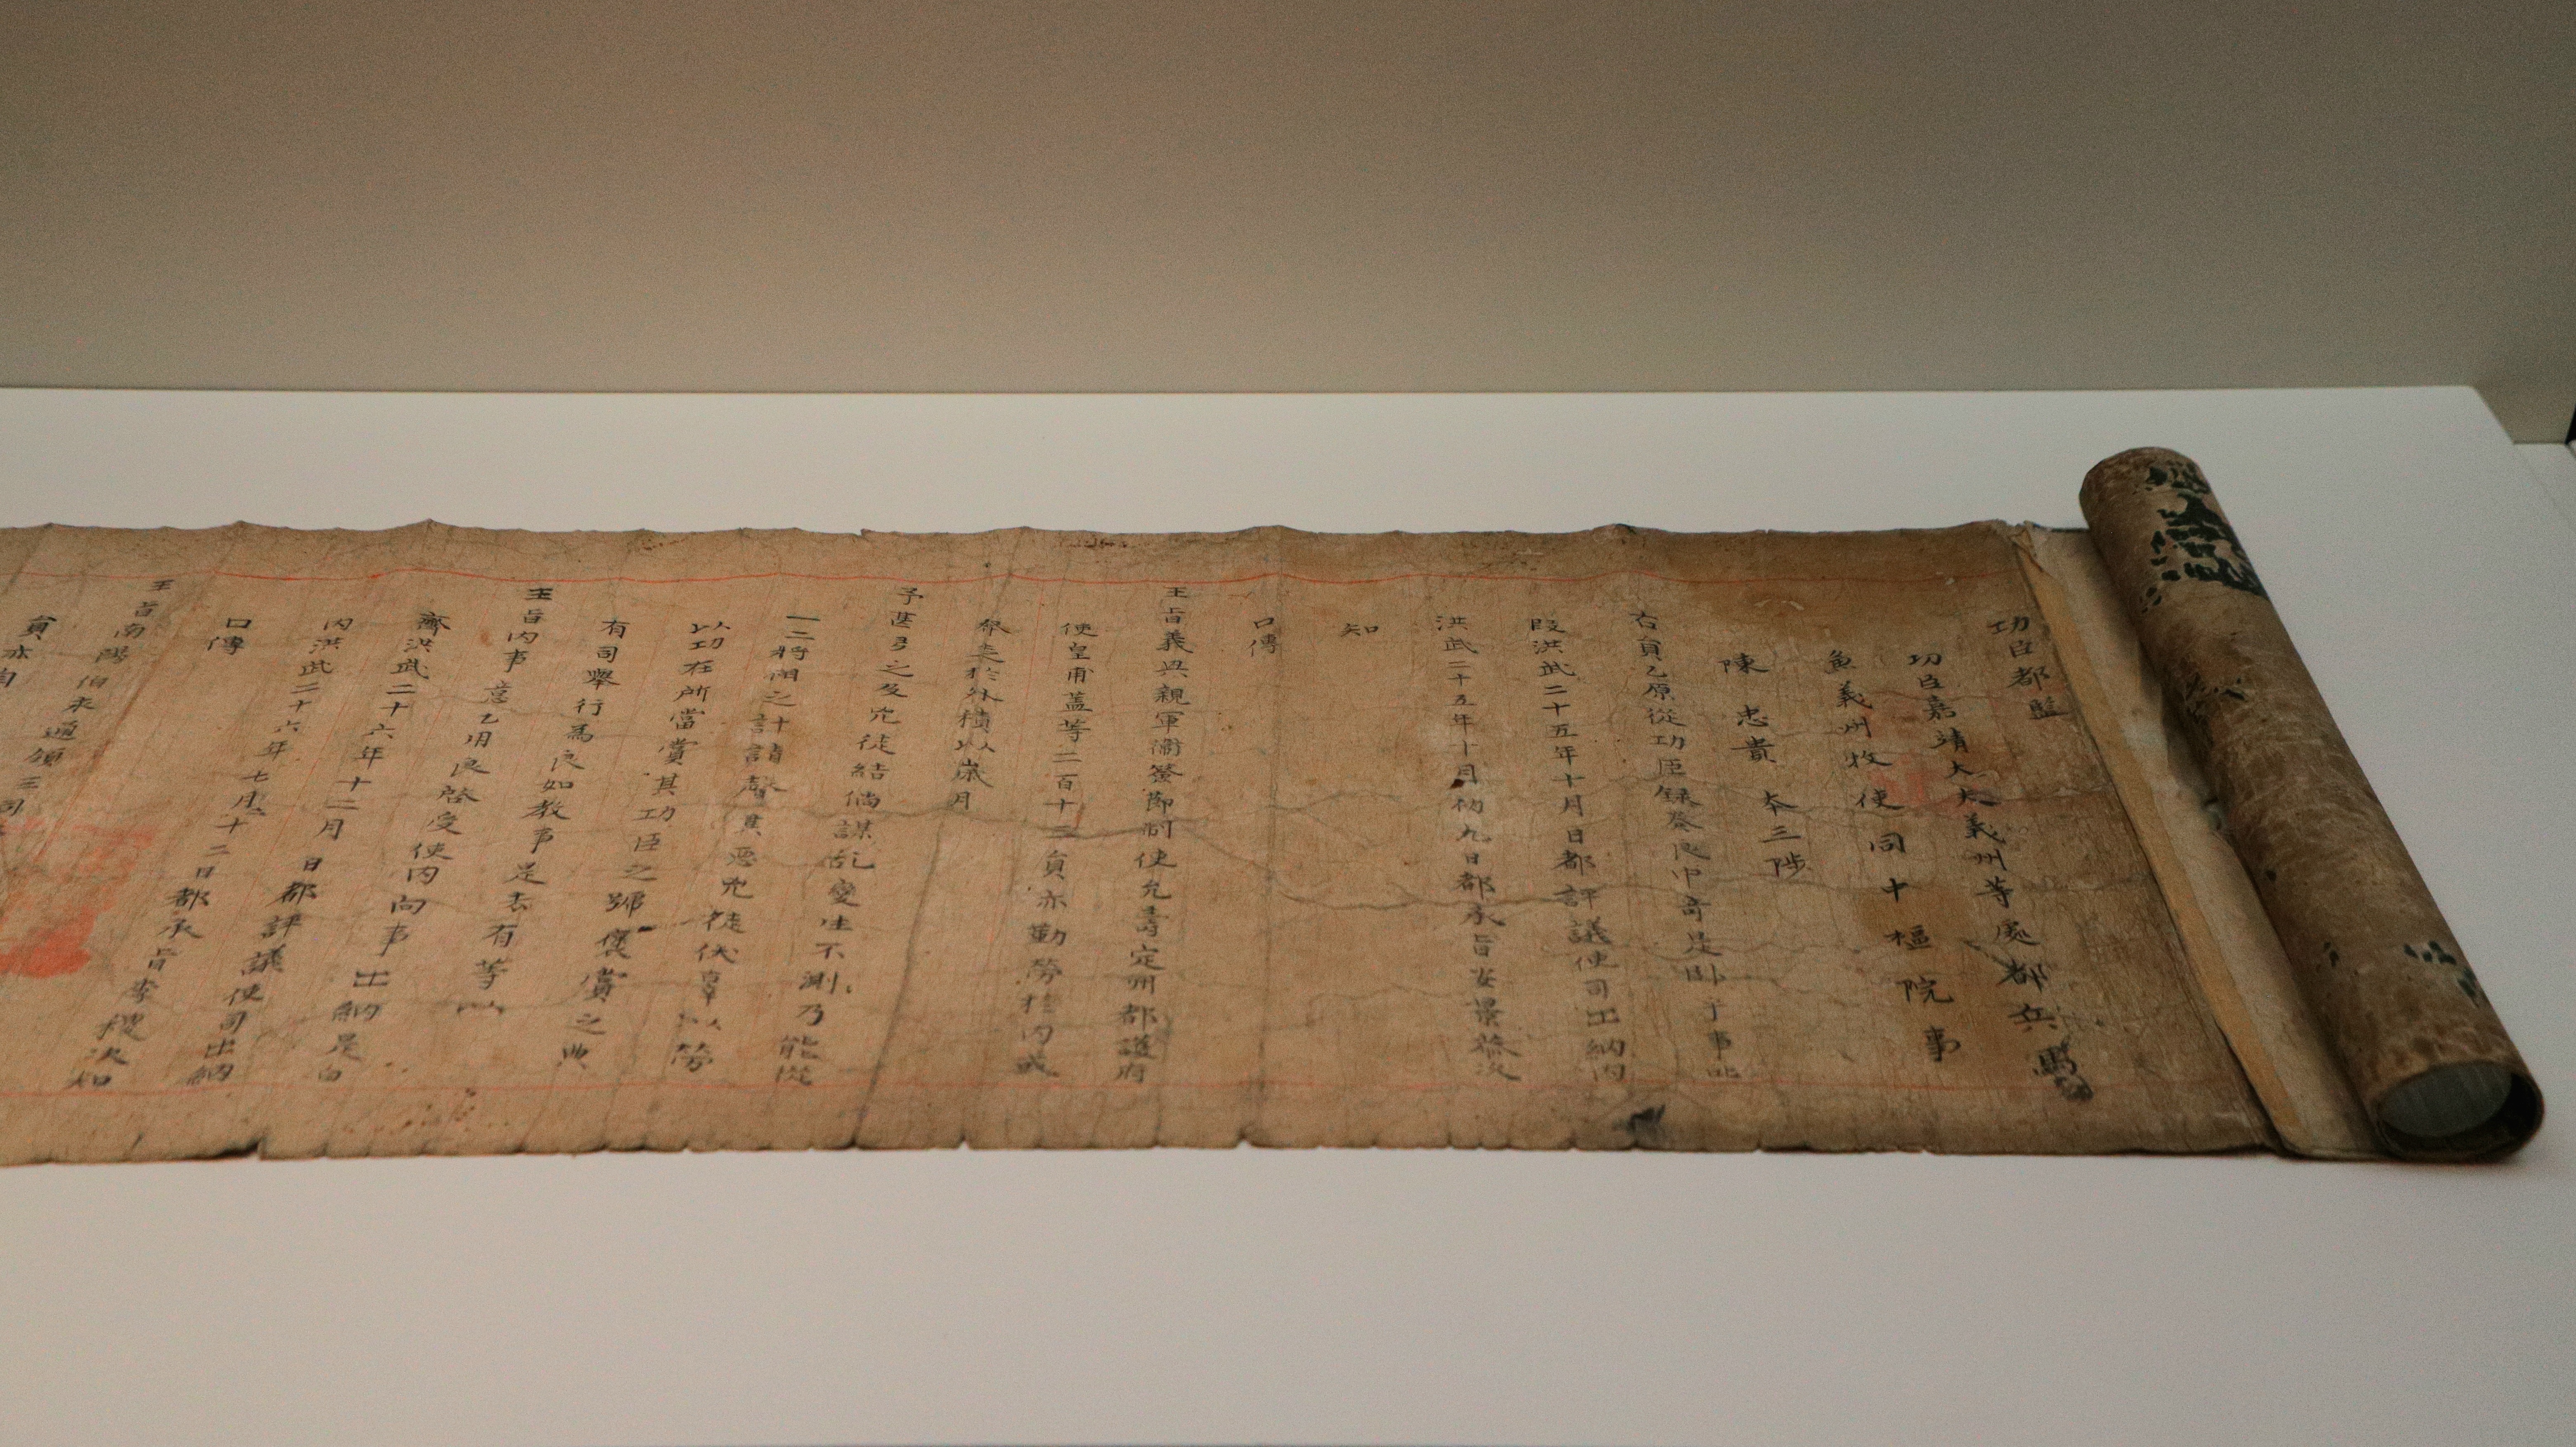 功臣都監
功臣嘉靖大夫義州等處都兵馬
兼義州牧使同中樞院事
陳忠貴 本三陟
右員乙原從功臣錄券良中奇是卧乎事叱
段洪武二十五年十月日都評議使司出納內
洪武二十五年十月初九日都承旨安景恭次
知
口傳
王旨義興親軍衛簽節制使允壽定州都護府
使皇甫盖等二百十三員亦勤勞於內或
於外積以歲月
予甚
之及凶徒結倘謀乱變生不測乃能從
一二將相之計請罄其
惡凶徒伏辜以勞
以功在所當賞其功臣之號褒賞之典
有司擧行爲良如敎事是去有等以
王旨內事意乙用良啓受使內向事出納是白
齊洪武二十六年十二月 日都評議使司出納
內洪武二十六年七月二十二日都承旨李稷次知
口傳
王旨南陽伯 通領三司
員亦